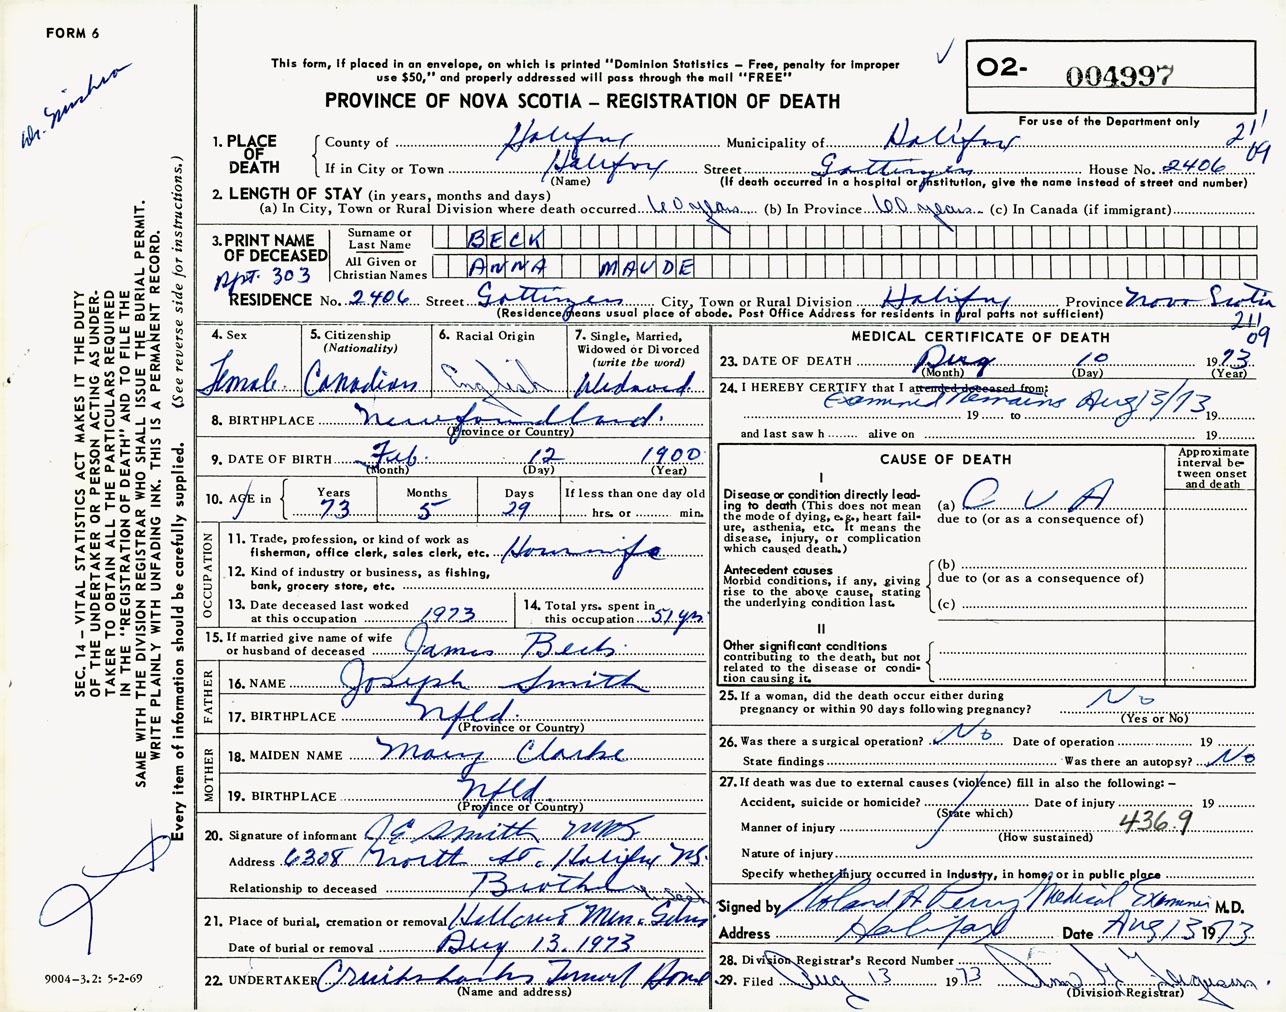 FORM 6
This form, if placed in an envelope, on which is printed "Dominion Statistics – Free, penalty for improper
use $50," and properly addressed will pass through the mail "FREE"
PROVINCE OF NOVA SCOTIA – REGISTRATION OF DEATH
O2- 004997
For use of the Department only
21'
09
1. PLACE OF DEATH
County of Halifax Municipality of Halifax
If in City or Town Halifax Street Gottingen House No. 2406
(Name) (If death occurred in a hospital or institution, give the name instead of street and number)
2. LENGTH OF STAY (in years, months and days)
(a) In City, Town or Rural Division where death occurred 60 years (b) In Province 60 years (c) In Canada (if immigrant)
3. PRINT NAME OF DECEASED
Surname or Last Name BECK
All Given or Christian Names ANNA MAUDE
Apt. 303
RESIDENCE No. 2406 Street Gottingen City, Town or Rural Division Halifax Province Nova Scotia
(Residence means usual place of abode. Post Office Address for residents in rural parts not sufficient)
21'
09
4. Sex Female
5. Citizenship (Nationality) Canadian
6. Racial Origin English
7. Single, Married, Widowed or Divorced (write the word) Widowed
8. BIRTHPLACE Newfoundland
(Province or Country)
9. DATE OF BIRTH Feb. 12 1900
(Month) (Day) (Year)
10. AGE in Years 73 Months 5 Days 29 If less than one day old
hrs. or min.
OCCUPATION
11. Trade, profession, or kind of work as
fisherman, office clerk, sales clerk, etc. Housewife
12. Kind of industry or business, as fishing,
bank, grocery store, etc.
13. Date deceased last worked
at this occupation 1973
14. Total yrs. spent in
this occupation 51 yrs
15. If married give name of wife
or husband of deceased James Beck
FATHER
16. NAME Joseph Smith
17. BIRTHPLACE Nfld.
(Province or Country)
MOTHER
18. MAIDEN NAME Mary Clarke
19. BIRTHPLACE Nfld.
(Province or Country)
20. Signature of informant J.E. Smith
Address 6308 North St. Halifax NS.
Relationship to deceased Brother
21. Place of burial, cremation or removal Hillcrest Mem. Gdns
Date of burial or removal Aug 13, 1973
22. UNDERTAKER Cruikshanks Funeral Home
(Name and address)
MEDICAL CERTIFICATE OF DEATH
23. DATE OF DEATH Aug 10 1973
(Month) (Day) (Year)
24. I HEREBY CERTIFY that I attended deceased from:
Examined Remains Aug 13/73
19 to 19
and last saw h alive on 19
CAUSE OF DEATH
Approximate interval between onset and death
I
Disease or condition directly lead-
ing to death (This does not mean
the mode of dying, e.g., heart fail-
ure, asthenia, etc. It means the
disease, injury, or complication
which caused death.)
(a) C V A
due to (or as a consequence of)
Antecedent causes
Morbid conditions, if any, giving
rise to the above cause, stating
the underlying condition last.
(b)
due to (or as a consequence of)
(c)
II
Other significant conditions
contributing to the death, but not
related to the disease or condi-
tion causing it.
25. If a woman, did the death occur either during
pregnancy or within 90 days following pregnancy? No
(Yes or No)
26. Was there a surgical operation? No Date of operation 19
State findings Was there an autopsy? No
27. If death was due to external causes (violence) fill in also the following:–
Accident, suicide or homicide? Date of injury 19
(State which)
Manner of injury 436.9
(How sustained)
Nature of injury
Specify whether injury occurred in industry, in home, or in public place
Signed by Roland A Perry Medical Examiner M.D.
Address Halifax Date Aug 13 1973
28. Division Registrar's Record Number
29. Filed Aug 13 1973
(Division Registrar)
SEC. 14 – VITAL STATISTICS ACT MAKES IT THE DUTY
OF THE UNDERTAKER OR PERSON ACTING AS UNDER-
TAKER TO OBTAIN ALL THE PARTICULARS REQUIRED
IN THE "REGISTRATION OF DEATH" AND TO FILE THE
SAME WITH THE DIVISION REGISTRAR WHO SHALL ISSUE THE BURIAL PERMIT.
WRITE PLAINLY WITH UNFADING INK. THIS IS A PERMANENT RECORD.
Every item of information should be carefully supplied. (See reverse side for instructions.)
9004-3.2: 5-2-69